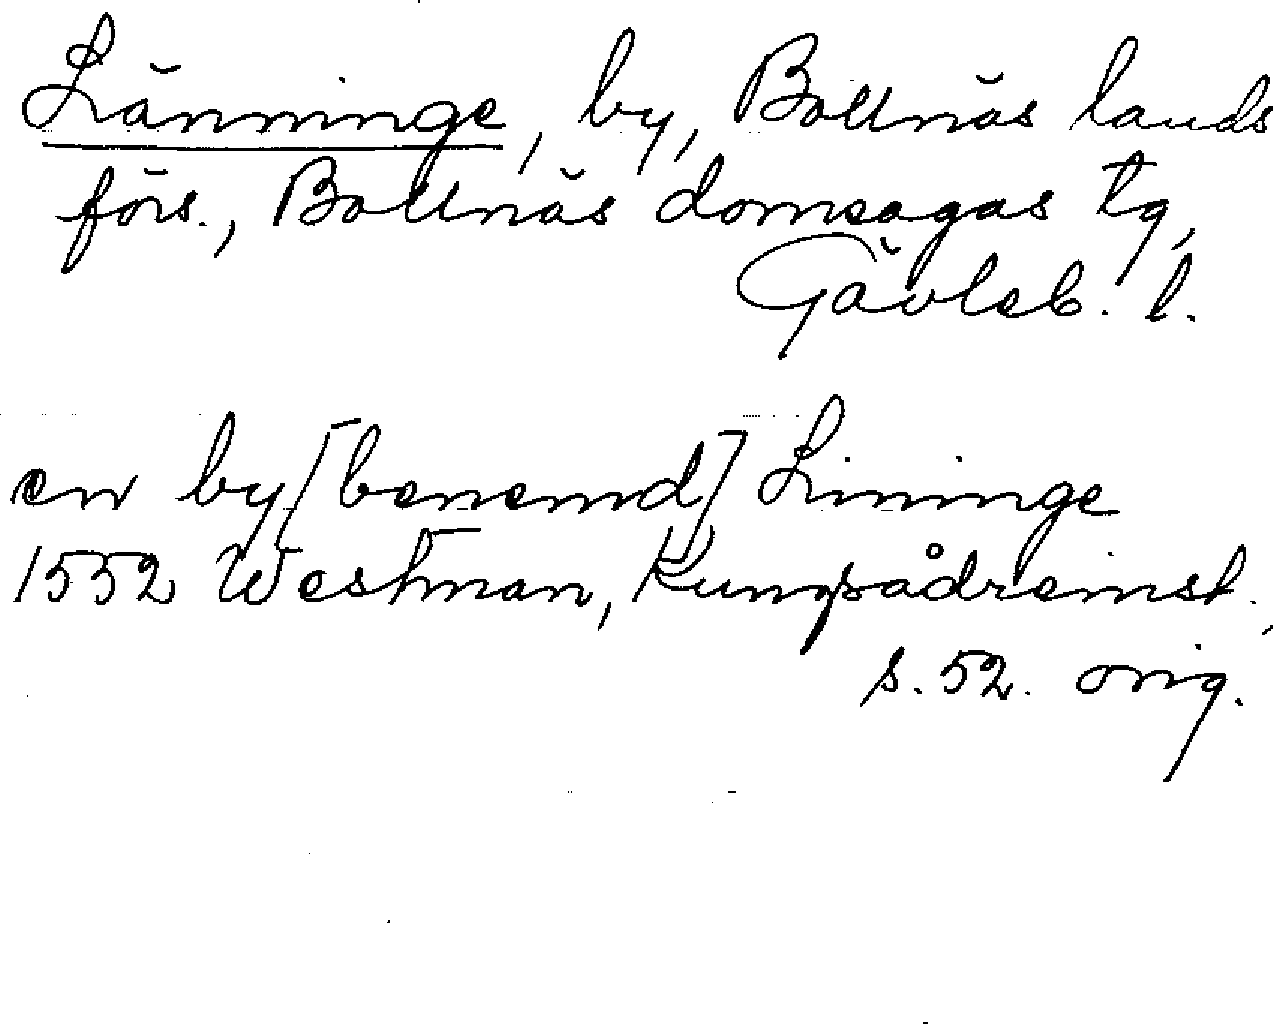 Länninge, by, Bollnäs lands
förs., Bollnäs domsagas tg,
Gävleb. l.
en by [benemd] Lininge
1552 Westman, Kungsådreinst.,
s. 52. orig.